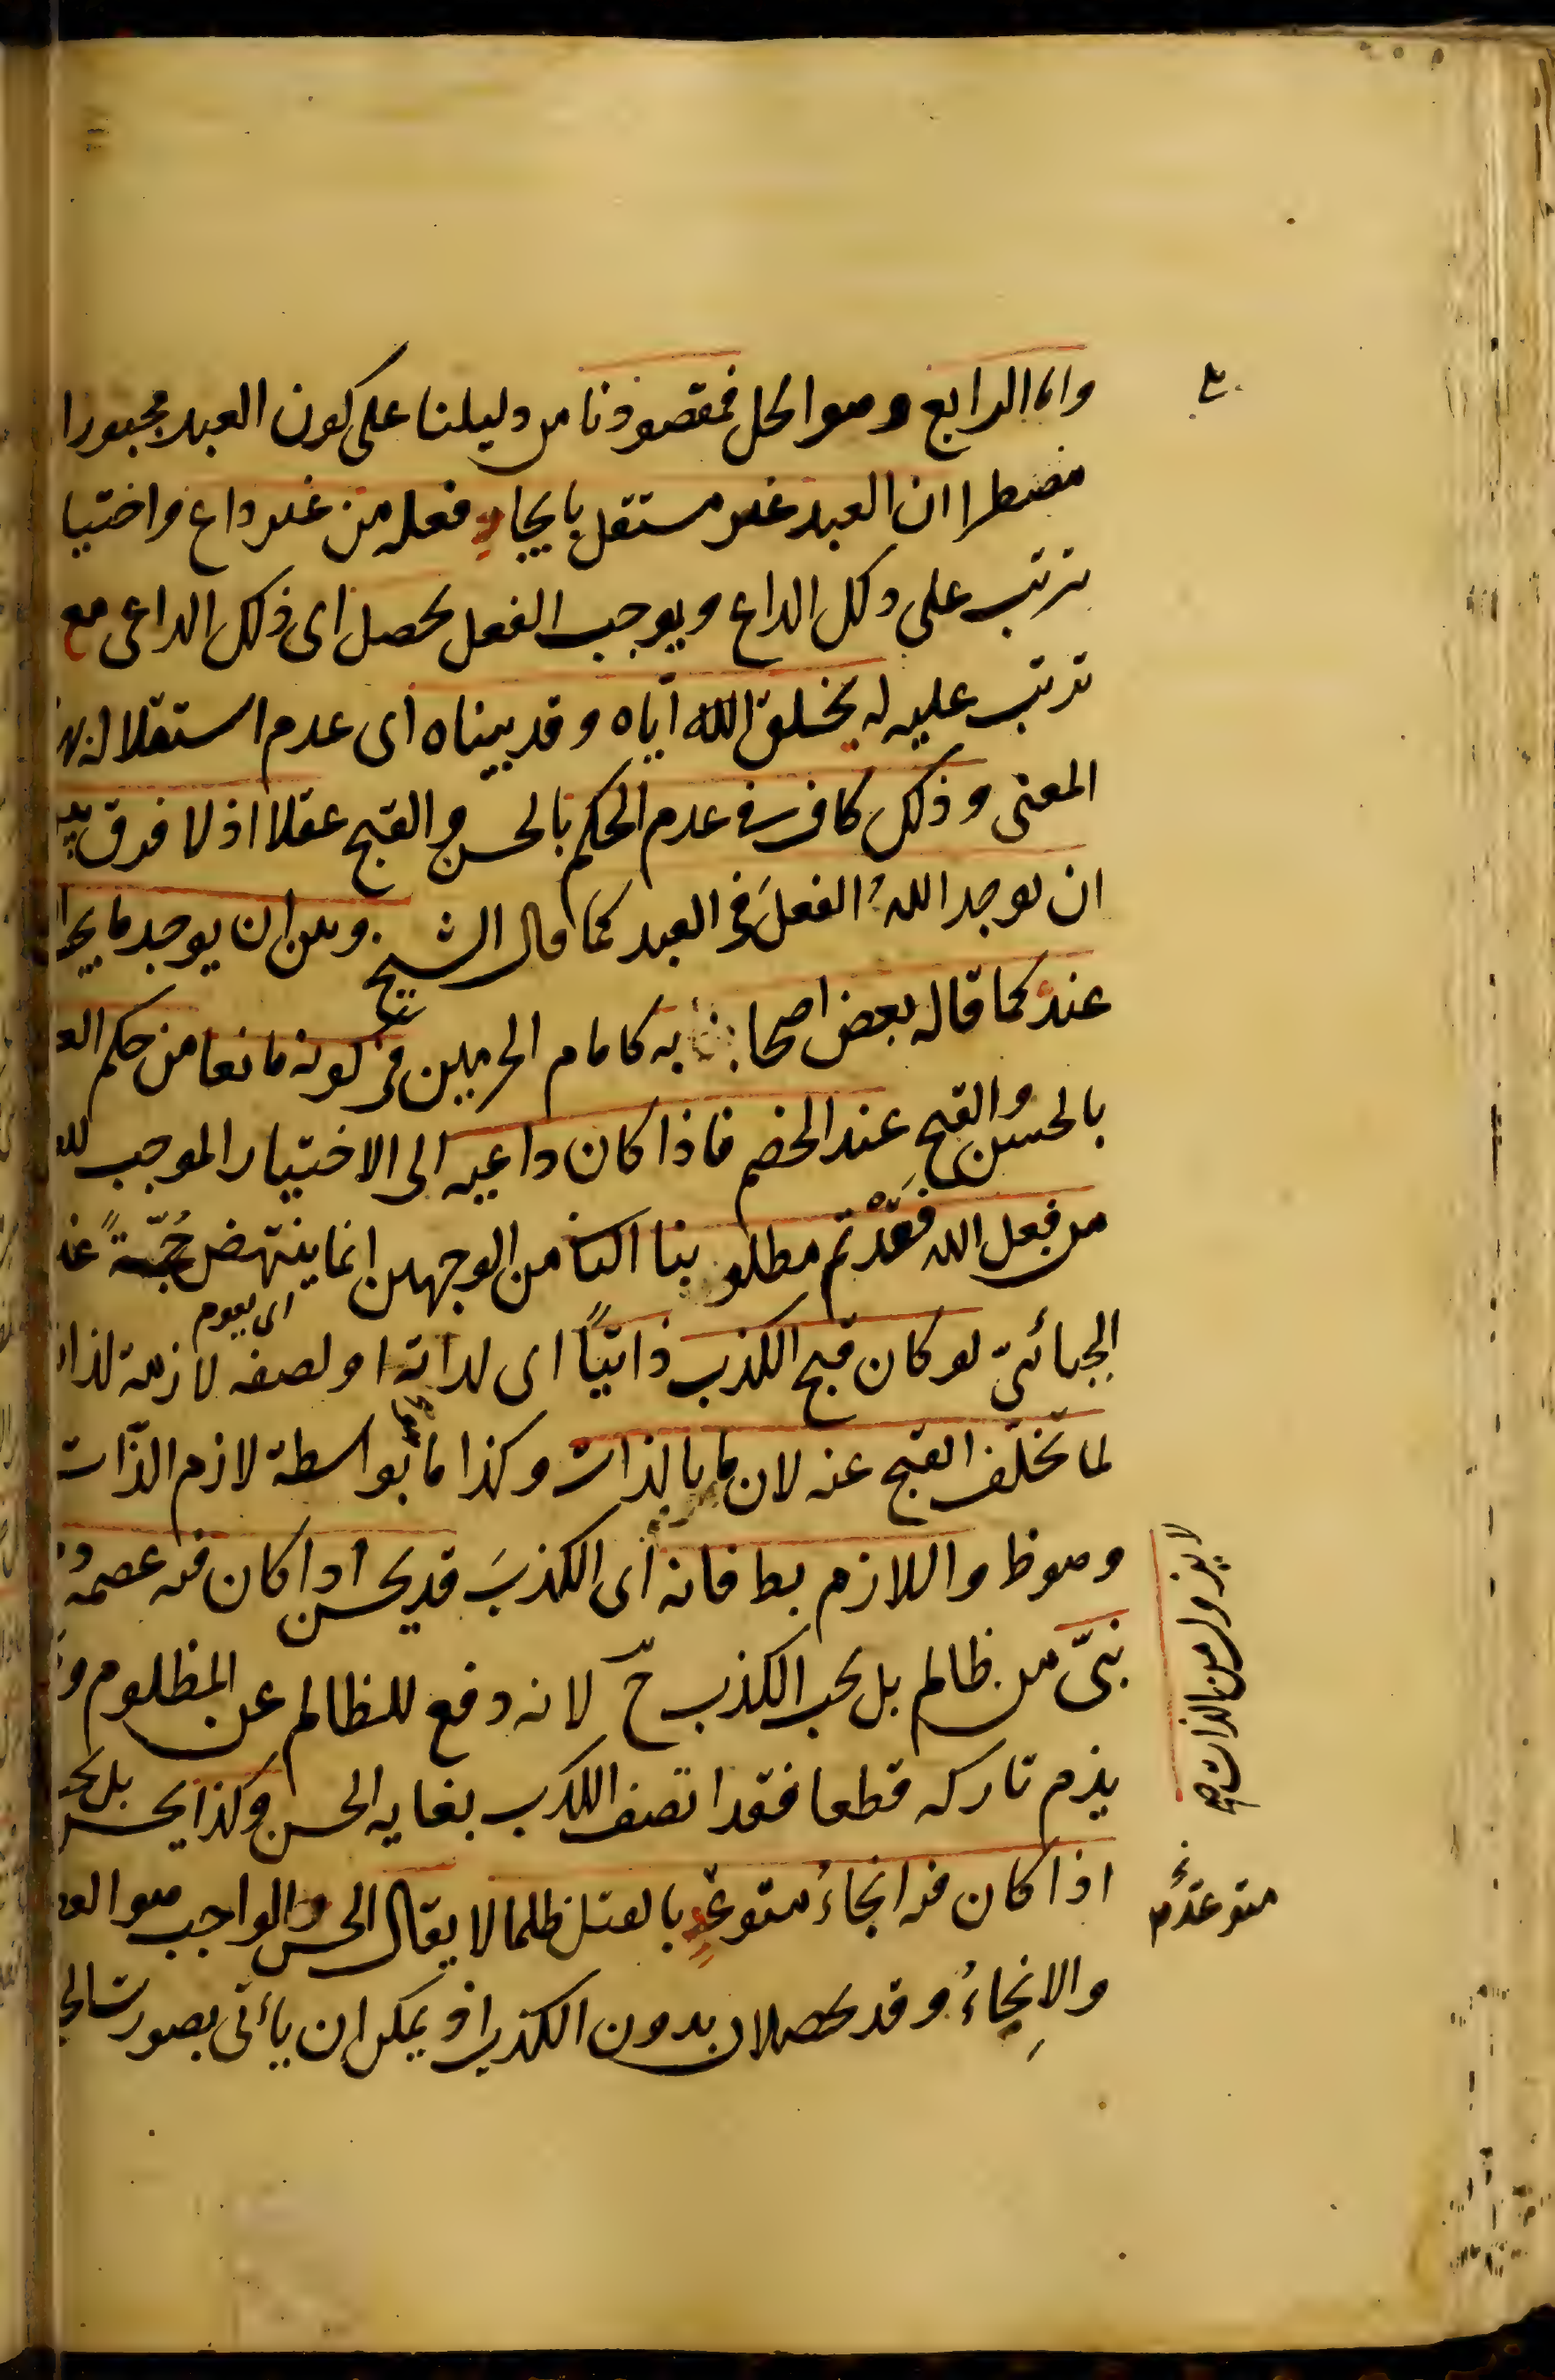 واما الرابع وهو الحل فمقصودنا من دليلنا على كون العبد مجبورا
مضطرا ان العبد غير مستقل بايجاد فعله من غير داع واختيا
ترتب على ذلك الداع ويوجب الفعل يحصل اى ذلك الداعى مع
ترتب عليه له يخلق الله اياه وقد بيناه اى عدم استقلاله بهذا
المعنى وذلك كاف فى عدم الحكم بالحسن والقبح عقلا اذ لا فرق بين
ان يوجد اللهُ الفعلَ فى العبد كما قال الشيخ وبين ان يوجد ما يجب
عنده كما قاله بعض اصحابه كامام الحرمين فى كونه مانعا من حكم الع
بالحسن والقبحِ عند الخصم فاذا كان داعيه الى الاختيار الموجب لل
من فعل الله فقد تم مطلوبنا الثانى من الوجهين انما ينتهض حُجّةً على
اى يقوم
الجبائىّ لو كان قبح الكذب ذاتيّاً اى لذاته او لصفة لازمة لذاته
لما تخلّف القبح عنه لان ما بالذات وكذا ما هو بواسطة لازم الذّات
لا يزول من الذات صح
وهو ظ واللازم بط فانه اى الكذبَ قد يحسن اذا كان فيه عصمة
نبىّ من ظالم بل يجب الكذب ح لانه دفع للظالم عن المظلوم و
يذم تاركه قطعا فقد اتصف الكذب بغاية الحسن وكذا يحسن بل يجب
اذا كان فيه انجاءُ متوعّدٍ بالقتل ظلما لا يقال الحسن والواجب هو الع
متوعّدٍ
والاِنجاءُ وقد يحصلان بدون الكذب اذ يمكن ان يأتى بصورت الخ